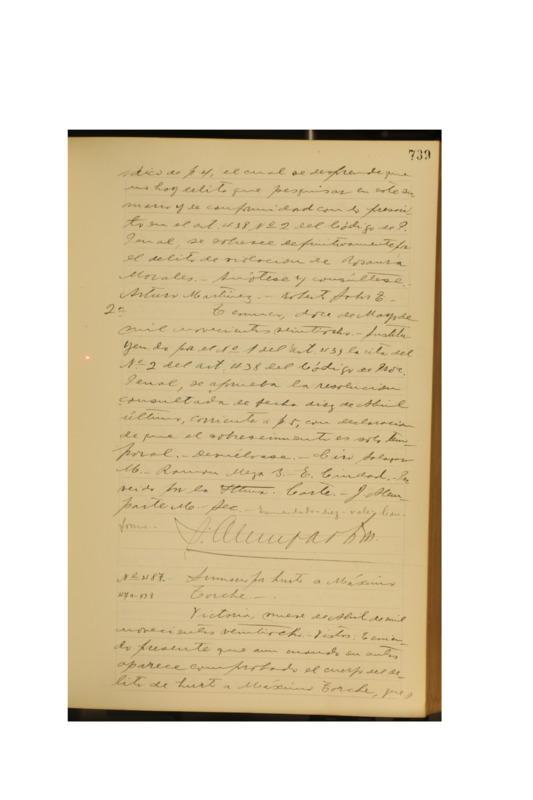 739
dico de f 4, el cual se desprende que
no hay delito que pesquisar en este su
mario y de conformidad con lo prescri-
to en el art. 438 Nº 2 del Código de P.
Penal, se sobresee definitivamente por
el delito de violacion de Rosaura
Morales. - Anótese y consúltese. -
Arturo Martinez. - Robert Soto E. -
2ª Temuco, doce de Mayo de
mil novecientos veintiocho. - Sustitu
yendo por el Nº 1 del art. 439 la cita del
Nº 2 del art. 438 del Código de Proc.
Penal, se aprueba la resolucion
consultada de fecha diez de Abril
último, corriente a f 5, con declaracion
de que el sobreseimiento es solo tem
poral. - Devuélvase. - Ciro Salazar
M. - Ramon Meza B. - E. Ciudad. Pro
veido por la Iltma. Corte. - J. Alem-
parte M. - Sec. - Enmendado - diez - vale. Con-
forme. -
Nº 487. - Sumario por hurto a Máximo
Torche. -
Victoria, nueve de Abril de mil
novecientos veintiocho. - Vistos: Tenien-
do presente que aun cuando en autos
aparece comprobado el cuerpo del de-
lito de hurto a Máximo Torche, que